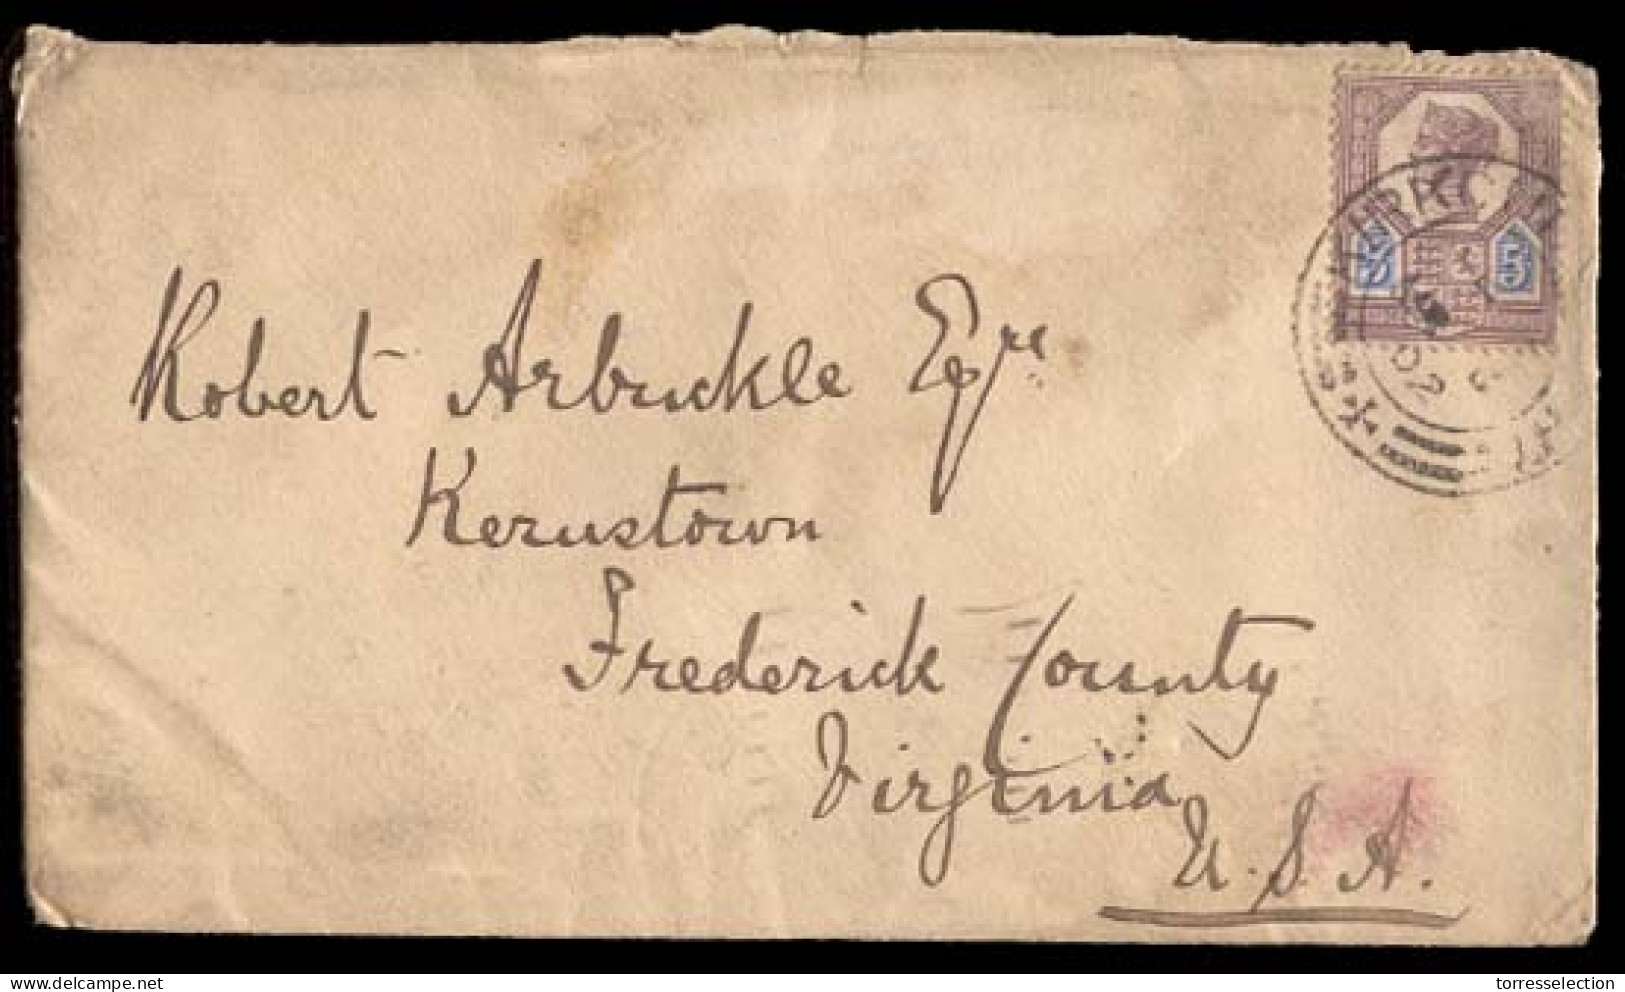 Robert Arbuckle Esqre
Kernstown
Frederick County
Virginia
U.S.A.
5
02
delcampe.net
torresselection